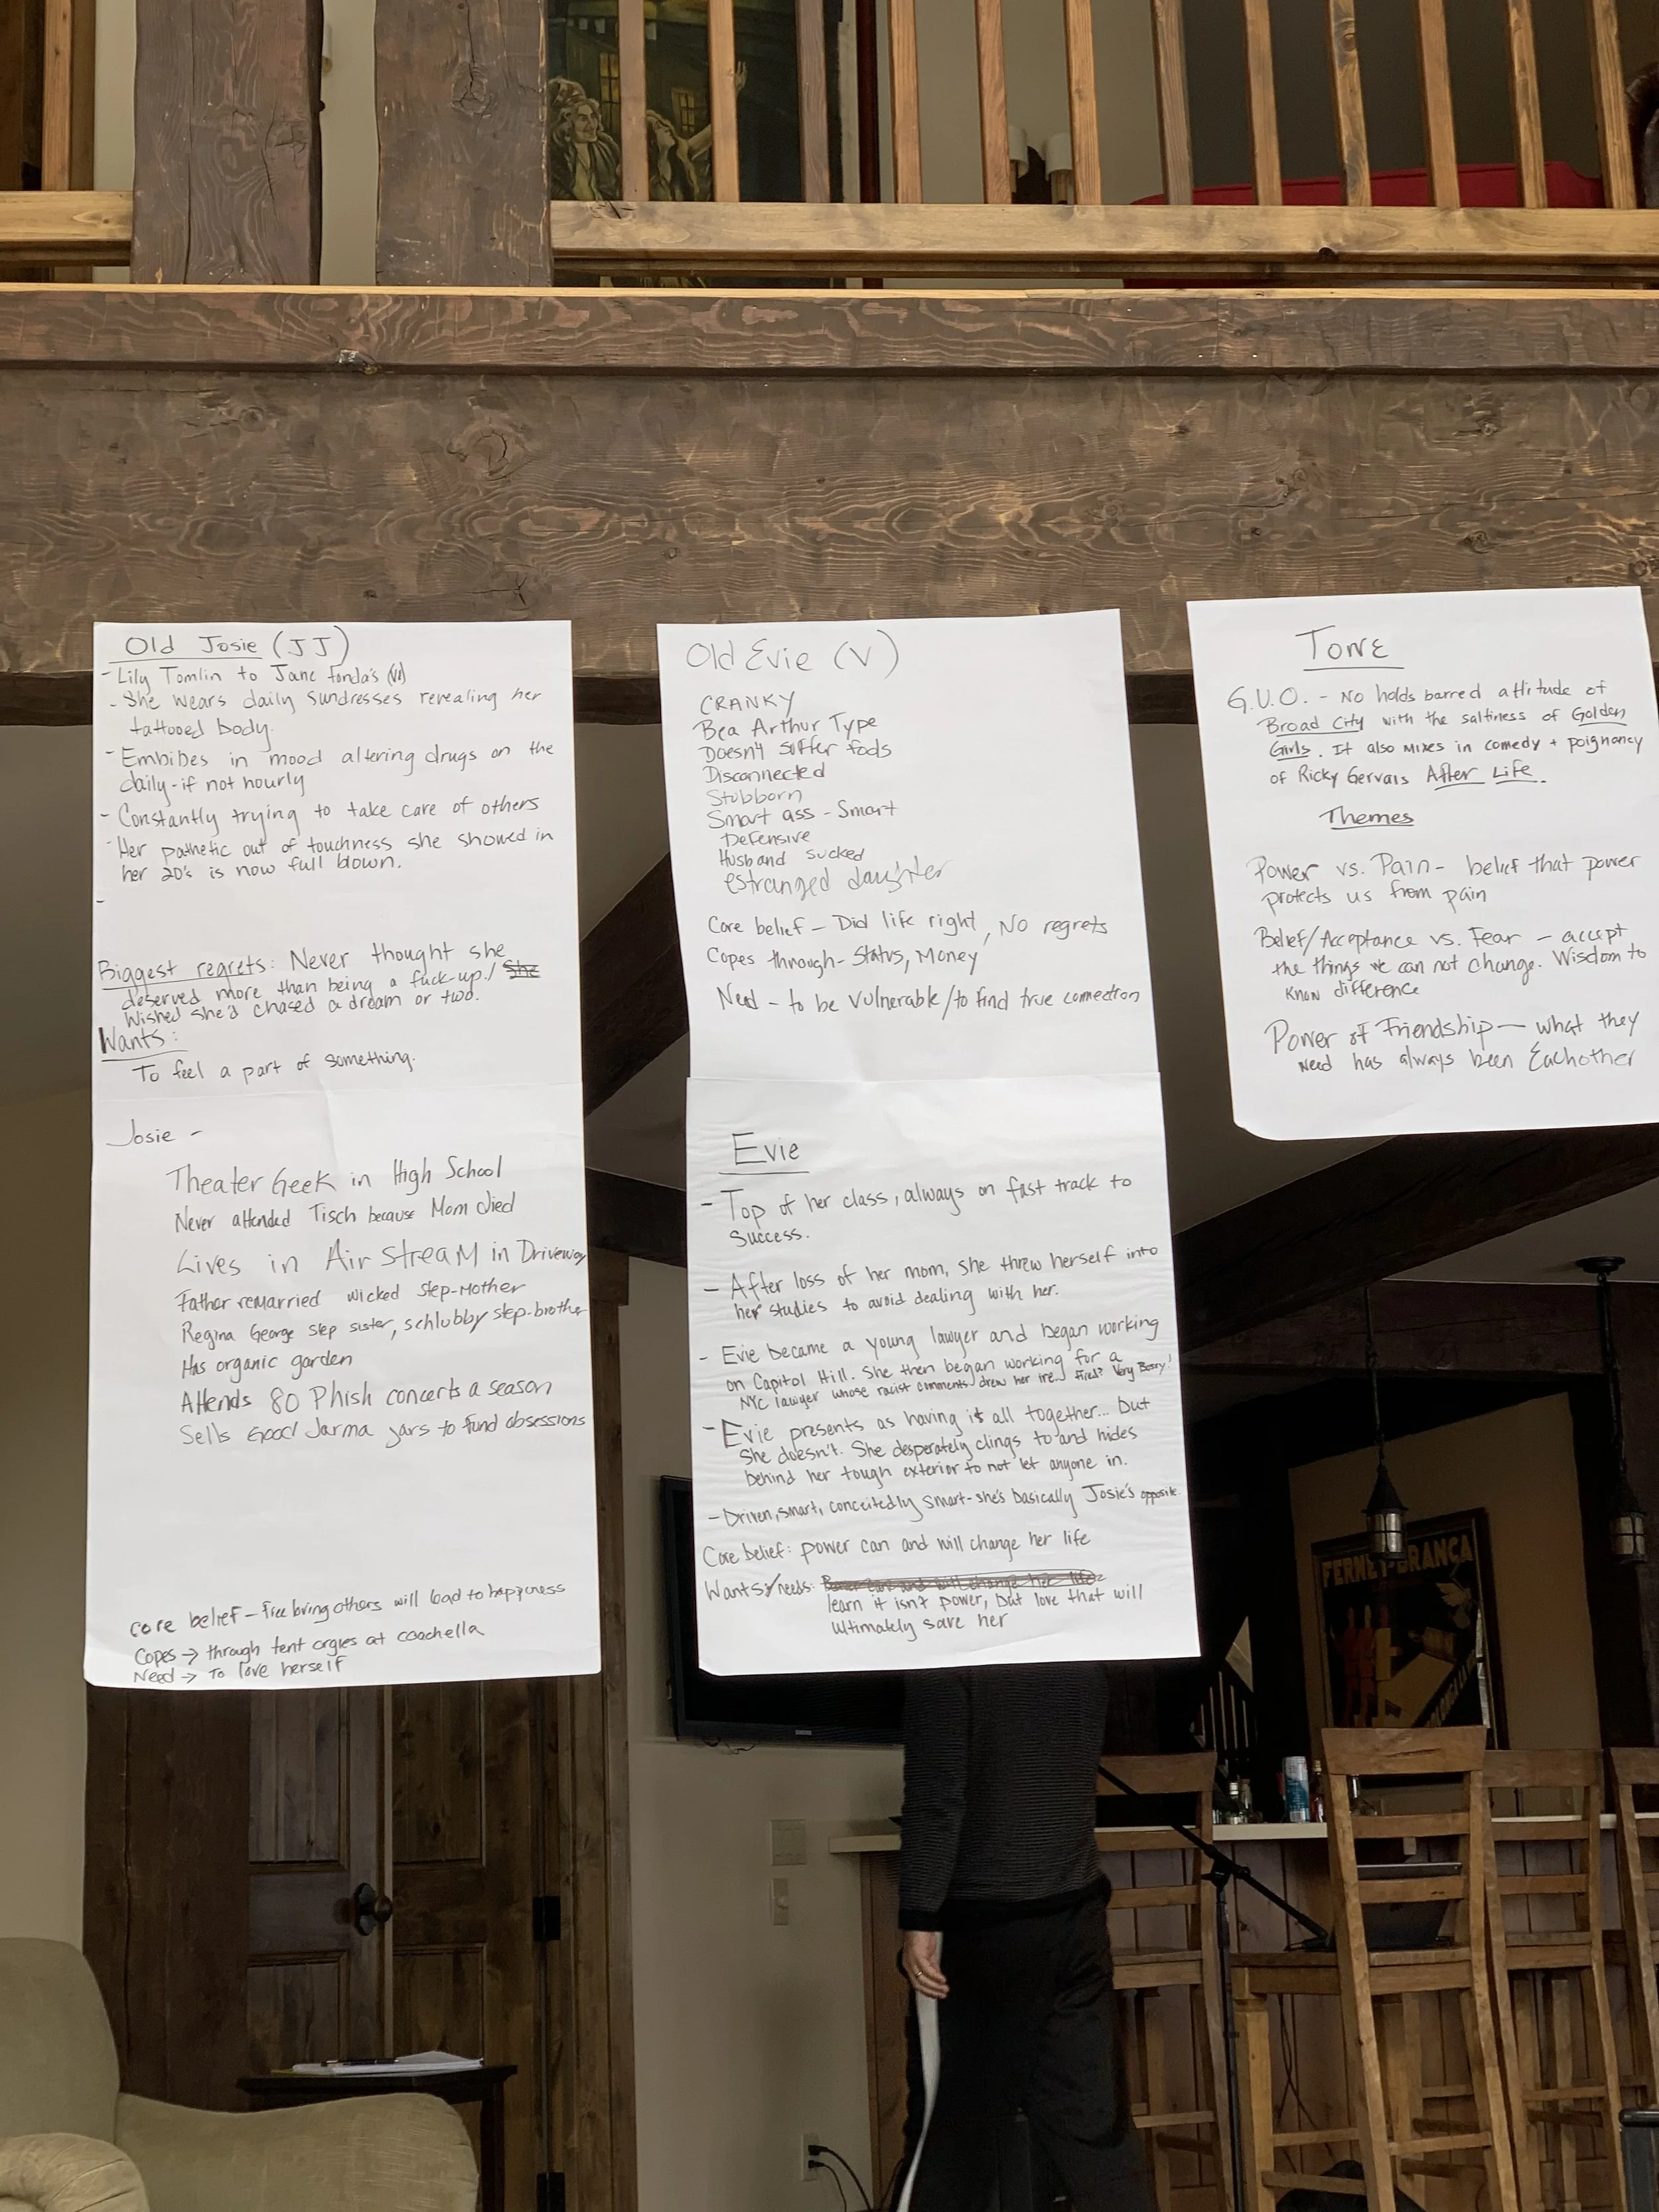 Old Josie (JJ)
- Lily Tomlin to Jane Fonda's (V)
- She wears daily sundresses revealing her
tattooed body.
- Embibes in mood altering drugs on the
daily - if not hourly
- Constantly trying to take care of others
- Her pathetic out of touchness she showed in
her 20's is now full blown.
-
Biggest regrets: Never thought she
deserved more than being a fuck-up! She
Wished she'd chased a dream or two.
Wants:
To feel a part of something.
Josie -
Theater Geek in High School
Never attended Tisch because Mom died
Lives in Air Stream in Driveway
Father remarried wicked step-Mother
Regina George step sister, schlubby step-brother
Has organic garden
Attends 80 Phish concerts a season
Sells Good Jarma jars to fund obsessions
Core belief - Free bring others will lead to happiness
Copes → through tent orgies at coachella
Need → To love herself
Old Evie (V)
CRANKY
Bea Arthur Type
Doesn't suffer fools
Disconnected
Stubborn
Smart ass - Smart
Defensive
Husband sucked
estranged daughter
Core belief - Did life right, No regrets
Copes through - Status, Money
Need - to be vulnerable/to find true connection
Evie
- Top of her class, always on fast track to
Success.
- After loss of her mom, she threw herself into
her studies to avoid dealing with her.
- Evie became a young lawyer and began working
on Capitol Hill. She then began working for a
NYC lawyer whose racist comments drew her ire... fired? Very Bossy!
- Evie presents as having it all together... but
she doesn't. She desperately clings to and hides
behind her tough exterior to not let anyone in.
- Driven, smart, conceitedly smart - she's basically Josie's opposite.
Core belief: power can and will change her life
Wants/needs: Power can and will change her life
learn it isn't power, but love that will
ultimately save her
Tone
G.U.O. - No holds barred attitude of
Broad City with the saltiness of Golden
Girls. It also mixes in comedy + poignancy
of Ricky Gervais After Life.
Themes
Power vs. Pain - belief that power
protects us from pain
Belief/Acceptance vs. Fear - accept
the things we can not change. Wisdom to
know difference
Power of Friendship - what they
Need has always been Eachother
FERNET-BRANCA